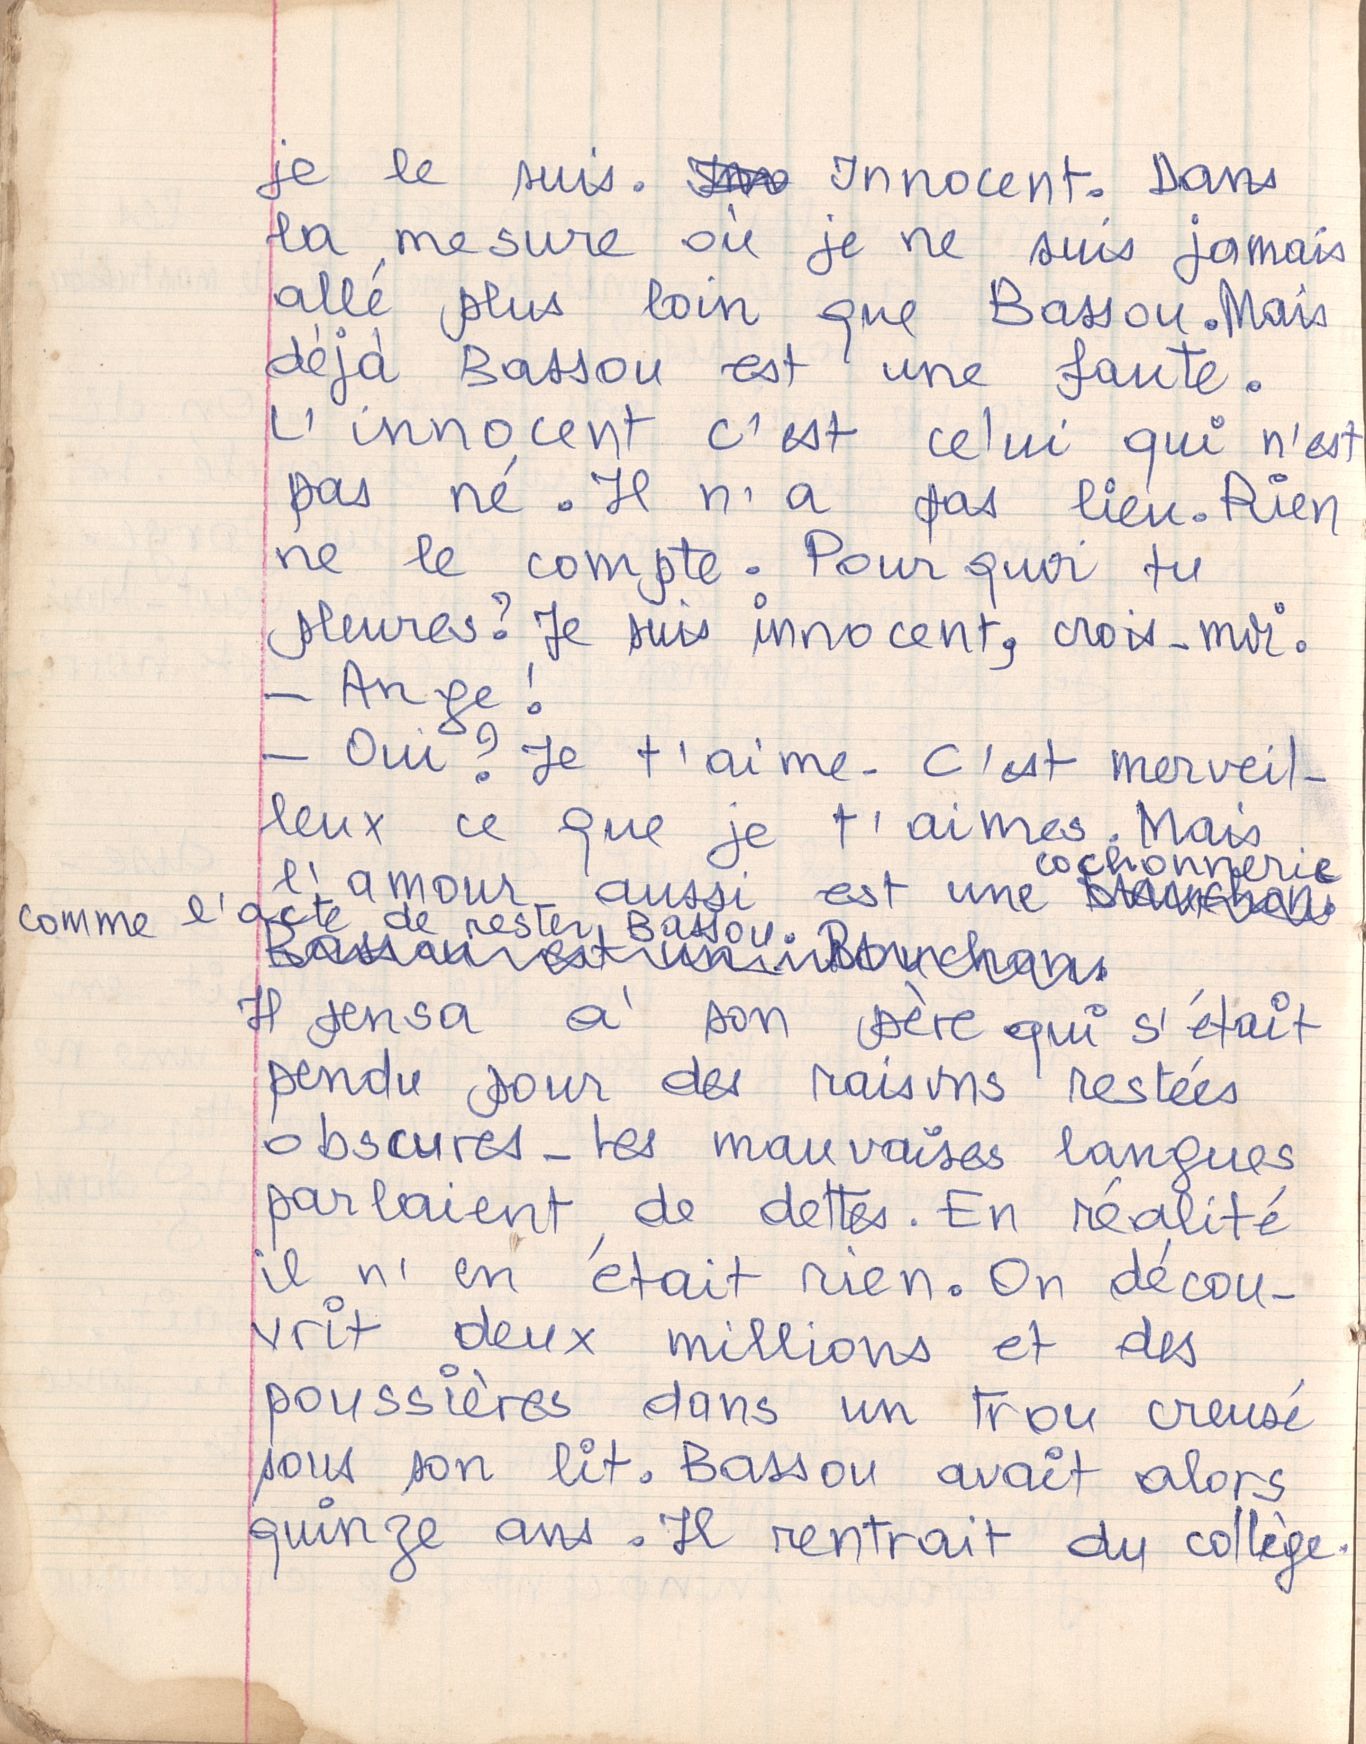 je le suis. Inno Innocent. Dans
la mesure où je ne suis jamais
allé plus loin que Bassou. Mais
déjà Bassou est une faute.
L'innocent c'est celui qui n'est
pas né. Il n'a pas lieu. Rien
ne le compte. Pourquoi tu
pleures? Je suis innocent, crois-moi.
– Ange!
– Oui? Je t'aime. C'est merveil-
leux ce que je t'aimes. Mais
cochonnerie
l'amour aussi est une
comme l'acte de rester Bassou.
Bassou est un Bouchon.
Il pensa à son père qui s'était
pendu pour des raisons restées
obscures – Les mauvaises langues
parlaient de dettes. En réalité
il n'en était rien. On décou-
vrit deux millions et des
poussières dans un trou creusé
sous son lit. Bassou avait alors
quinze ans. Il rentrait du collège.